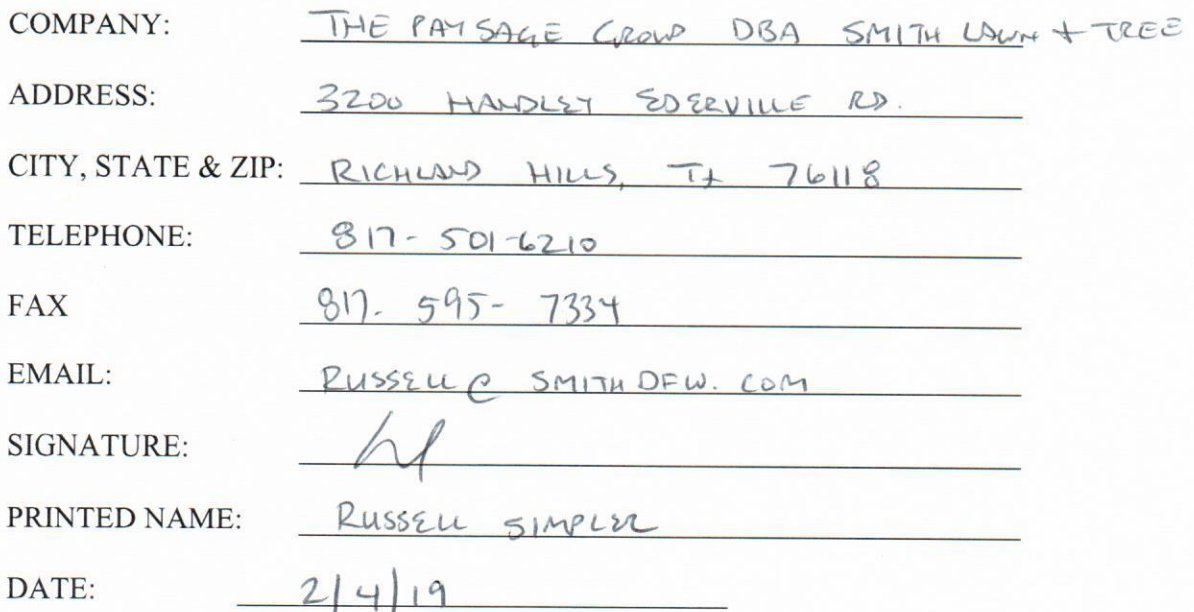 COMPANY: THE PAYSAGE GROUP DBA SMITH LAWN + TREE
ADDRESS: 3200 HANDLEY EDERVILLE RD.
CITY, STATE & ZIP: RICHLAND HILLS, TX 76118
TELEPHONE: 817-501-6210
FAX 817-595-7334
EMAIL: RUSSELL@SMITHDFW.COM
SIGNATURE:
PRINTED NAME: RUSSELL SIMPLER
DATE: 2/4/19